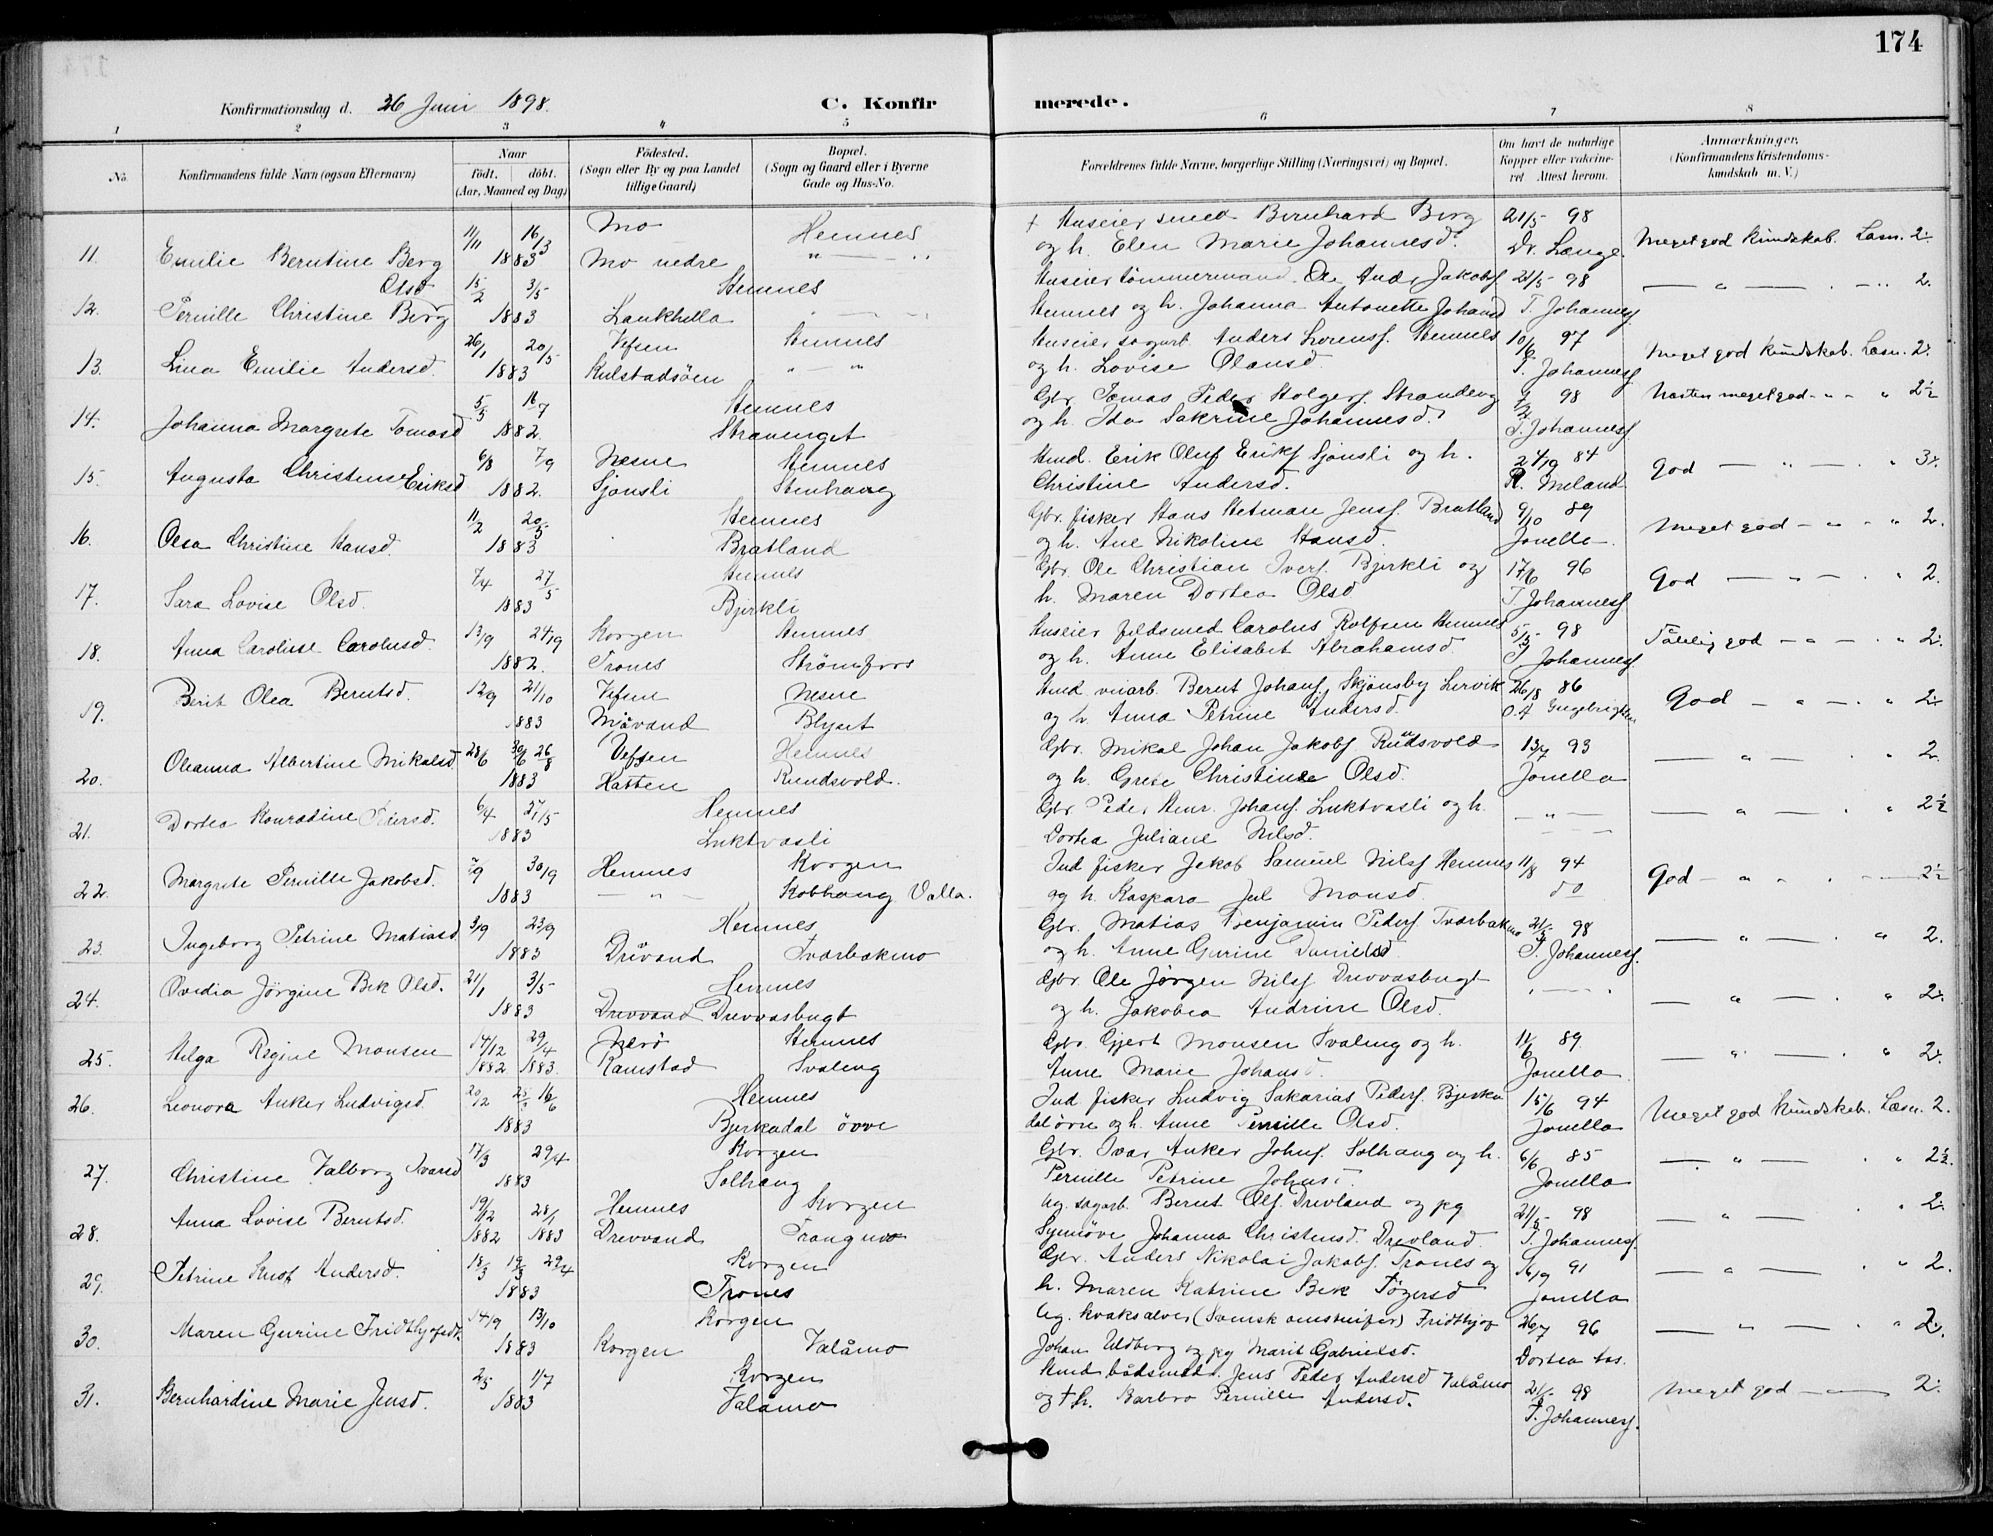 174
Konfirmationsdag d. 26 Juni 1898.
C. Konfirmerede.
1 2 3 4 5 6 7 8
No. Konfirmandens fulde Navn (ogsaa Efternavn) Naar födt. döbt. (Aar, Maaned og Dag) Födested. (Sogn eller By og paa Landet tillige Gaard) Bopæl. (Sogn og Gaard eller i Byerne Gade og Hus-No. Forældrenes fulde Navne, borgerlige Stilling (Næringsvei) og Bopæl. Om havt de naturlige Kopper eller vakcineret Attest herom. Anmærkninger, (Konfirmandens Kristendomskundskab m. V.)
11/11 16/3 Mo Hemnes † Huseier smed Bernhard Berg 21/5 98
11. Emilie Berntine Berg 1883 Mo nedre " — " og h. Elen Marie Johannesd. Dr. Lange Meget god kundskab. Læsn. 2.
Olsd 15/2 3/5 Hemnes Huseier tömmermand Ole And. Jakobs. 21/5 98
12. Pernille Christine Berg 1883 Lankhella Hemnes og h. Johanna Antonette Johansd T. Johannes. — " — 2.
26/1 20/5 Vefsen Hemnes Huseier sagarb. Anders Lorens. Hemnes 10/6 97
13. Lina Emilie Andersd. 1883 Kulstadsöen " — " og h. Lovise Olausd. T. Johannes. Meget god kundskab. Læsn. 2.
5/5 16/7 Hemnes Gbr. Tomas Peder Holgers. Stranden 98
14. Johanna Margrete Tomasd 1882. og h. Ida Sakrine Johannesd. T. Johannes. Næsten meget god - " - " 2½
6/8 7/9 Nesne Hemnes Hmd. Erik Oluf Eriks. Sjonsli og h. 24/9 84
15. Augusta Christense Eriksd 1882. Sjonsli Stenhaug Christine Andersd. R. Meland God — " — . " 3.
11/2 20/5 Hemnes Gbr. fisker Hans Hetman Jens. Bratland 9/10 89
16. Olea Christine Hansd. 1883 Bratland og h. Ane Nikoline Hansd. Jonella. Meget god — " - " 2.
7/4 27/5 Hemnes Gbr. Ole Christian Ivers. Bjerkli og 17/6 96
17. Sara Lovise Olsd. 1883 Bjerkli h. Maren Dortea Olsd T. Johannes. God — " — . " 2.
13/9 24/9 Korgen Hemnes Huseier feldsmed Carolus Rolfsen Hemnes 5/5 98
18. Anna Caroline Carolusd. 1882. Trones Strömfors og h. Anne Elisabet Abrahamsd. T. Johannes. Tålelig god — " — . " 2.
12/9 21/10 Vefsen Nesne Hmd. veiarb. Bernt Johans. Skjönsby Lervik 26/8 86
19. Berit Olea Berntsd. 1883 og h. Anna Petrine Andersd. God — " — . " 2.
28/6 30/6 26/8 Vefsen Hemnes Gbr. Mikal Johan Jakobs. Rundsvold 13/7 93
20. Oleanna Albertine Mikalsd. 1883 Hatten Rundsvold. og h. Grete Christine Olsd. Jonella — " — " 2.
6/4 27/5 Hemnes Gbr. Peder Henr. Johans. Luktvasli og h. — " —
21. Dortea Konradine Pedersd. 1883 Luktvasli Dortea Juliane Nilsd. — " — . " 2½
7/9 30/9 Hemnes Korgen Ind. fisker Jakob Samuel Nils. Hemnes 11/8 94
22. Margrete Pernille Jakobsd. 1883 — " — Kobhaug Valla. og h. Kaspara Jul. Monsd. do God — " . — 2½
3/9 23/9 Hemnes Gbr. Matias Benjamin Peders. Tværbakmo 21/5 98
23. Ingeborg Petrine Matiasd 1883 Drivand Tværbakmo og h. Anne Gurine Danielsd. T. Johannes. — " — . " 2.
21/1 3/5 Hemnes Gbr. Ole Jörgen Nils. Drevvasbugt
24. Ovedia Jörgine Bek Olsd. 1883 Drevvand Drevvasbugt og h. Jakobea Andrine Olsd. — " — . " 2.
14/12 29/4 Nerö Hemnes Gbr. Gjert Monsen Svaleng og h. 11/6 89
25. Helga Regine Monsen 1882 1883. Ramstad Svaleng Anne Marie Johansd. Jonella — " — . " 2.
20/12 16/6 Hemnes Ind. fisker Ludvig Sakarias Peders. Bjerka 15/6 94
26. Leonora Anker Ludvigsd. 1883 Bjerkadal övre dal övre og h. Anne Pernille Olsd. Jonella Meget god kundskab. Læsn. 2.
17/3 29/4 Korgen Gbr. Ivar Anker Johns. Solhaug og h. 6/6 85
27. Christine Valborg Ivarsd 1883 Solhaug Pernille Petrine Johnsd. Jonella — " — . " 2½.
19/12 28/1 Hemnes Korgen Ug. sagarb. Bernt Ols. Drevland og pg 21/5 98
28. Anna Lovise Berntsd. 1882 1883 Drevvand Trangmo Synnöve Johanna Christensd. Drevland. T. Johannes. — " — . " 2.
18/3 19/3 29/4 Korgen Gbr. Anders Nikolai Jakobs. Trones og 16/9 91
29. Petrine Knof Andersd. 1883 Trones h. Maren Katrine Bek Tögersd Jonella — " — . " 2.
14/9 13/10 Korgen Ug. kvaksalver (Svensk omstreifer) Fridthjof 26/7 96
30. Maren Gurine Fridthjofsdt. 1883 Korgen Valåmo Johan Udborg og pg Marit Gabrielsd. Dortea Aas. — " — . " 2.
2/5 1/7 Korgen Hmd. bådsmed Jens Peder Andersd Valåmo 21/5 98
31. Bernhardine Marie Jensd. 1883 Valåmo og † h. Barbro Pernille Andersd. T. Johannes. Meget god — " — 2.